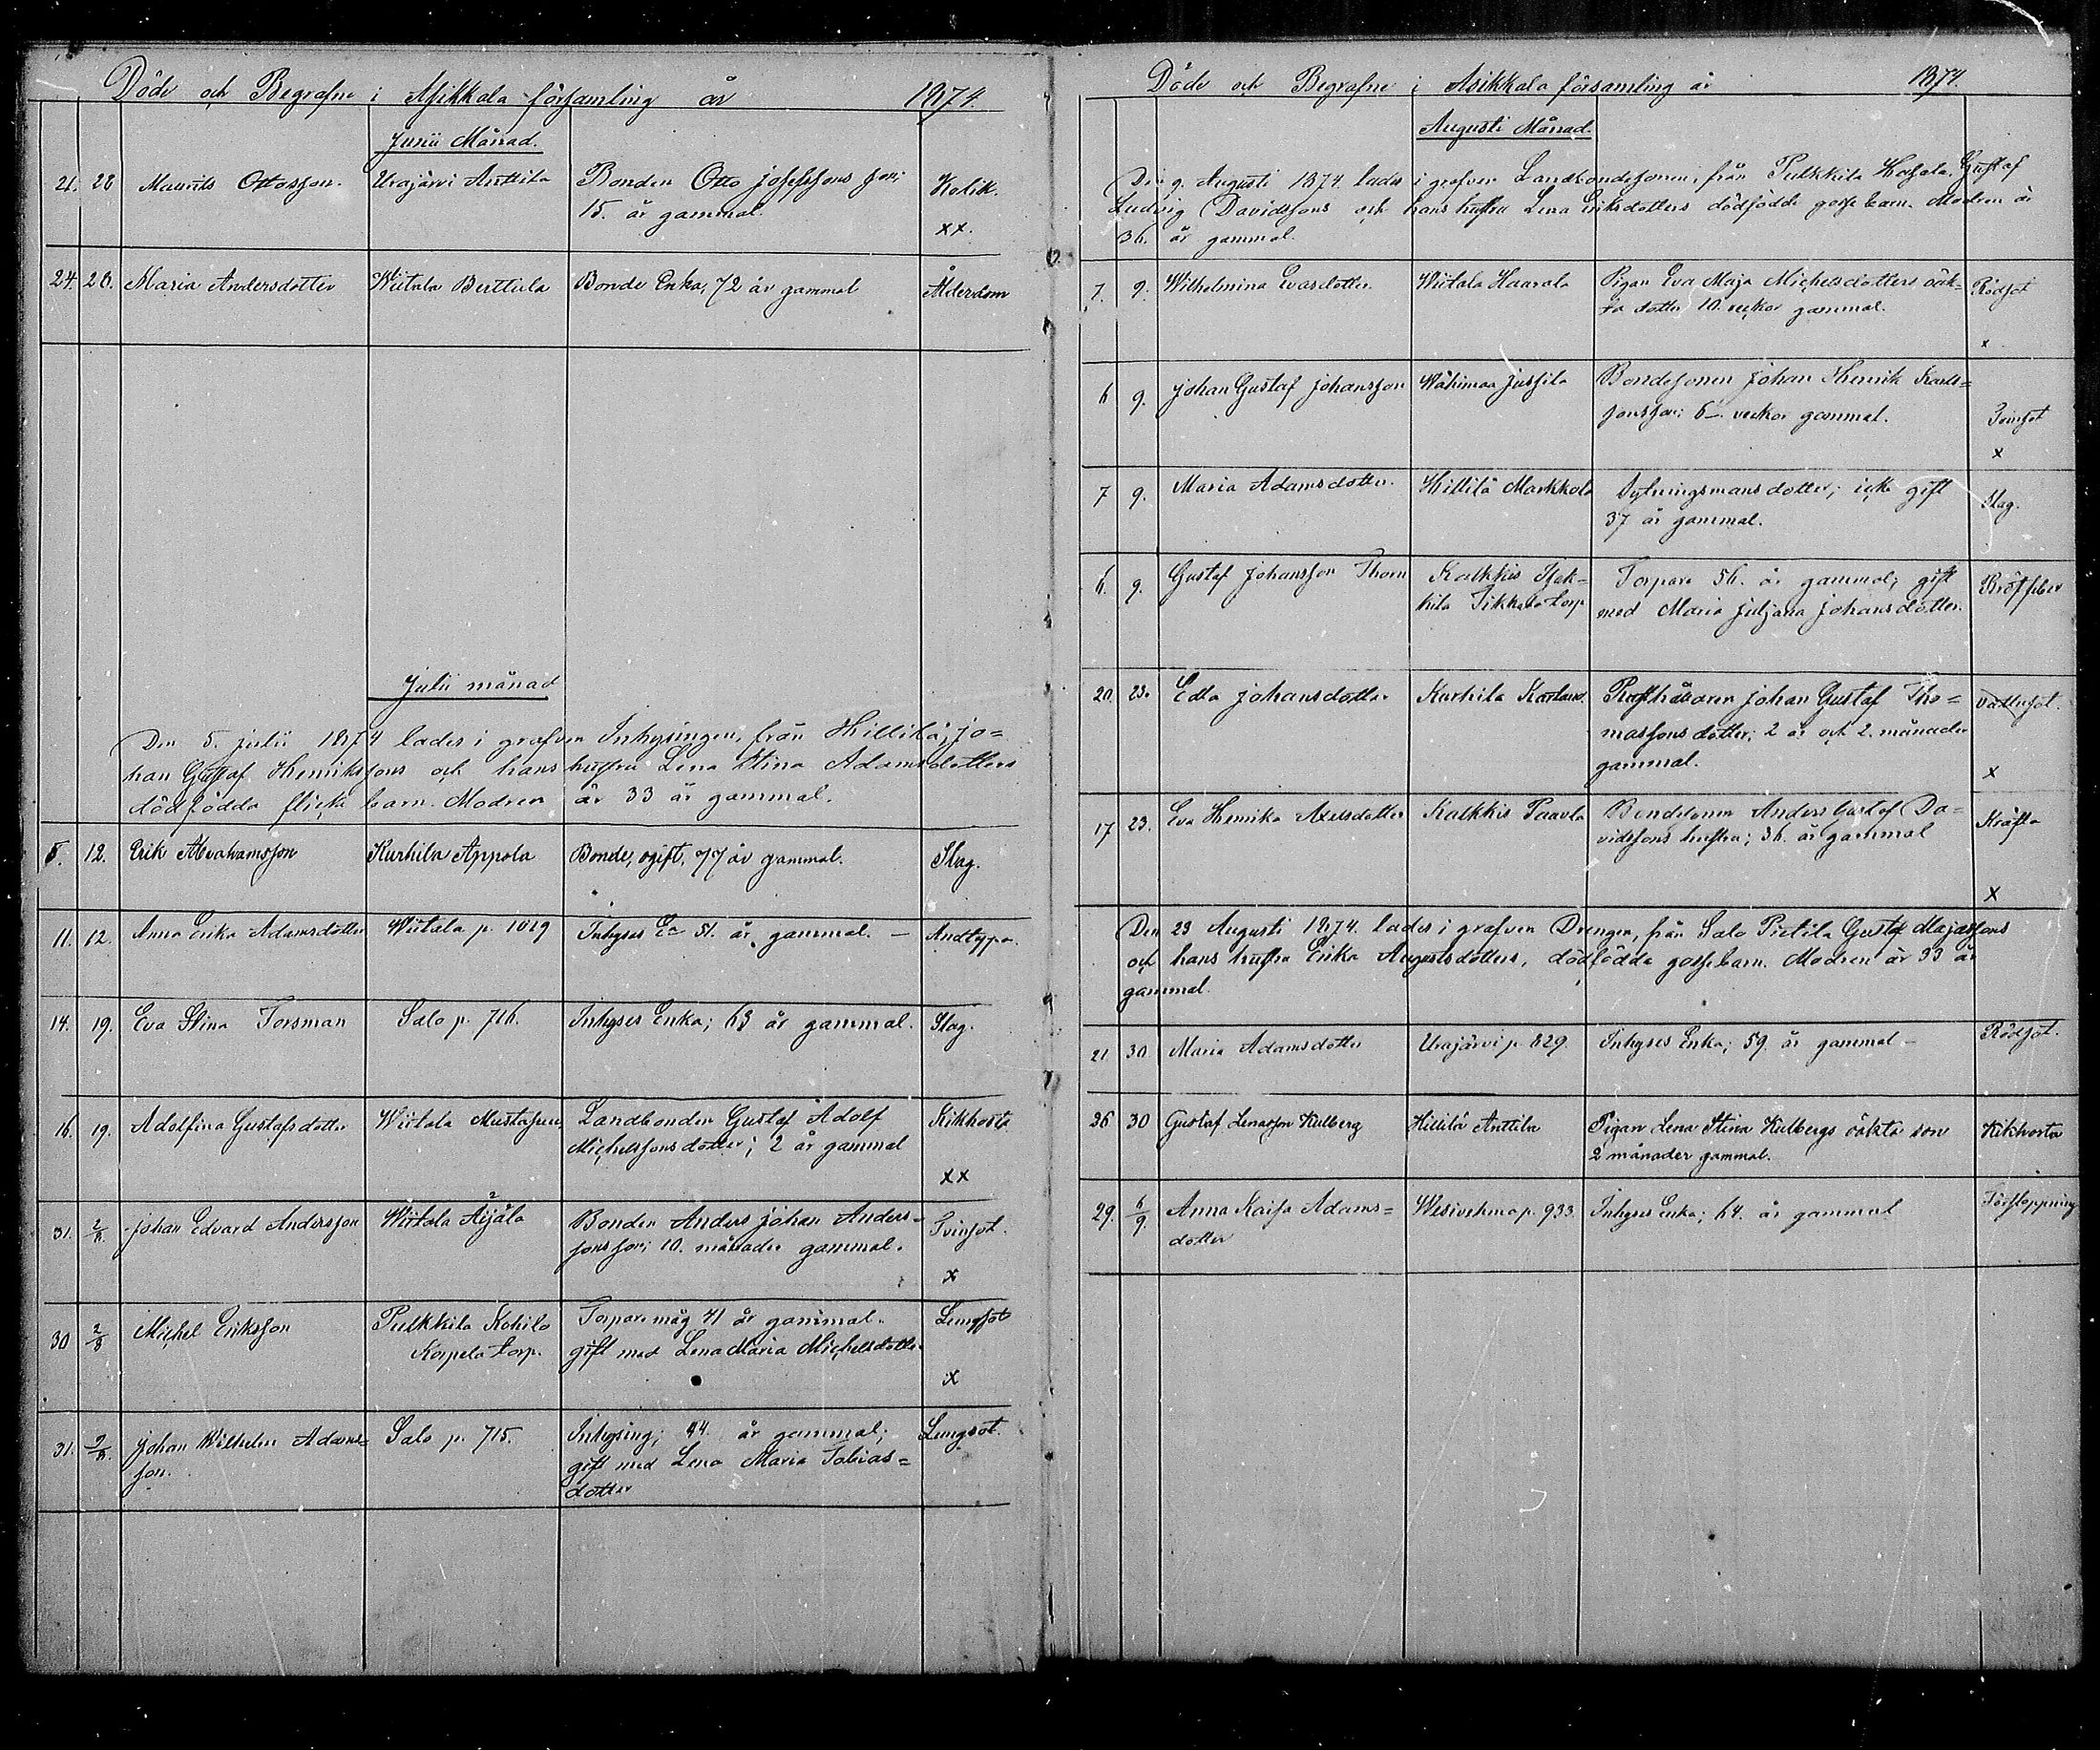 Döde och Begrafne i Asikkala församling år 1874.
Junii Månad.
21. 28 Maurits Ottosson. Urajärvi Anttila Bonden Otto Josefssons son; Kolik.
15. år gammal. xx.
24. 28. Maria Andersdotter Wiitala Berttula Bonde Enka, 72 år gammal Ålderdom
Julii månad
Den 5. julii 1874 lades i grafven Inhysingen, från Hillilä, jo=
han Gustaf Henrikssons och hans hustru Lena Stina Adamsdotters
dödfödda flicke barn. Modren är 33 år gammal.
5. 12. Erik Abrahamsson Kurhila Appola Bonde, ogift, 77 år gammal. Slag.
11. 12. Anna Erika Adamsdotter Wiitala p. 1019 Inhyses Ea 51. år gammal. — Andtäppa.
14. 19. Eva Stina Forsman Salo p. 716. Inhyses Enka; 63 år gammal. Slag.
16. 19. Adolfina Gustafsdotter Wiitala Mustajusu Landbonden Gustaf Adolf Kikhosta
Michelssons dotter; 2 år gammal
xx
31. 2/8. Johan Edvard Andersson Wiitala Äijälä Bonden Anders Johan Anders= Tvinsot.
sons son; 10. månader gammal.
x
30 2/8 Michel Eriksson Pulkkila Kohilo Torpare måg 41 år gammal. Lungsot
Korpela torp. gift med Lena Maria Michelsdotter.
x
31. 2/8. Johan Wilhelm Adams= Salo p. 715. Inhysing; 44. år gammal; Lungsot.
son. gift med Lena Maria Tobias=
dotter
Döde och Begrafne i Asikkala församling år 1874.
Augusti Månad.
Den 9. Augusti 1874. lades i grafven Landbondesonen, från Pulkkila Gustaf
Ludvig Davidssons och hans hustru Lena Eriksdotters dödfödde gosse barn. Modren är
36. år gammal.
7. 9. Wilhelmina Evasdotter Wiitala Haarala Pigan Eva Maja Michelsdotters oäk= Rödsot
ta dotter 10. veckor gammal.
x
6 9. Johan Gustaf Johansson Wähimaa Jussila Bondesonen Johan Henrik Karls=
sons son; 6 veckor gammal. Tvinsot
x
7 9. Maria Adamsdotter. Hillilä Markkola Sytningsmans dotter; icke gift Slag.
37 år gammal.
6. 9. Gustaf Johansson Thorn Kalkkis Isak= Torpare 56. år gammal; gift Rötfeber
kila Tikkala torp med Maria Juljana Johansdotter.
20. 23. Edla Johansdotter Kurhila Johan Gustaf Tho= Vattusot.
massons dotter; 2 år och 2. månader
gammal. x
17 23. Eva Henrika Axelsdotter Kalkkis Paavola Bondesonen Anders Gustaf Da= Kräfta
vidssons hustru; 36. år gammal
x
Den 23 Augusti 1874. lades i grafven Drengen, från Salo Pietila Gustaf Majassons
och hans hustru Erika Augustsdotters, dödfödda gosse barn. Modren är 33 år
gammal.
21 30 Maria Adamsdotter Urajärvi p. 829. Inhyses Enka; 59. år gammal — Rödsot.
26 30 Gustaf Lenasson Kulberg Hillilä Anttila Pigan Lena Stina Kulbergs oäkta son Kikhosta
2 månader gammal.
29. 6/9. Anna Kaisa Adams= Wesivehma p. 933. Inhyses Enka; 64. år gammal Förstoppning
dotter